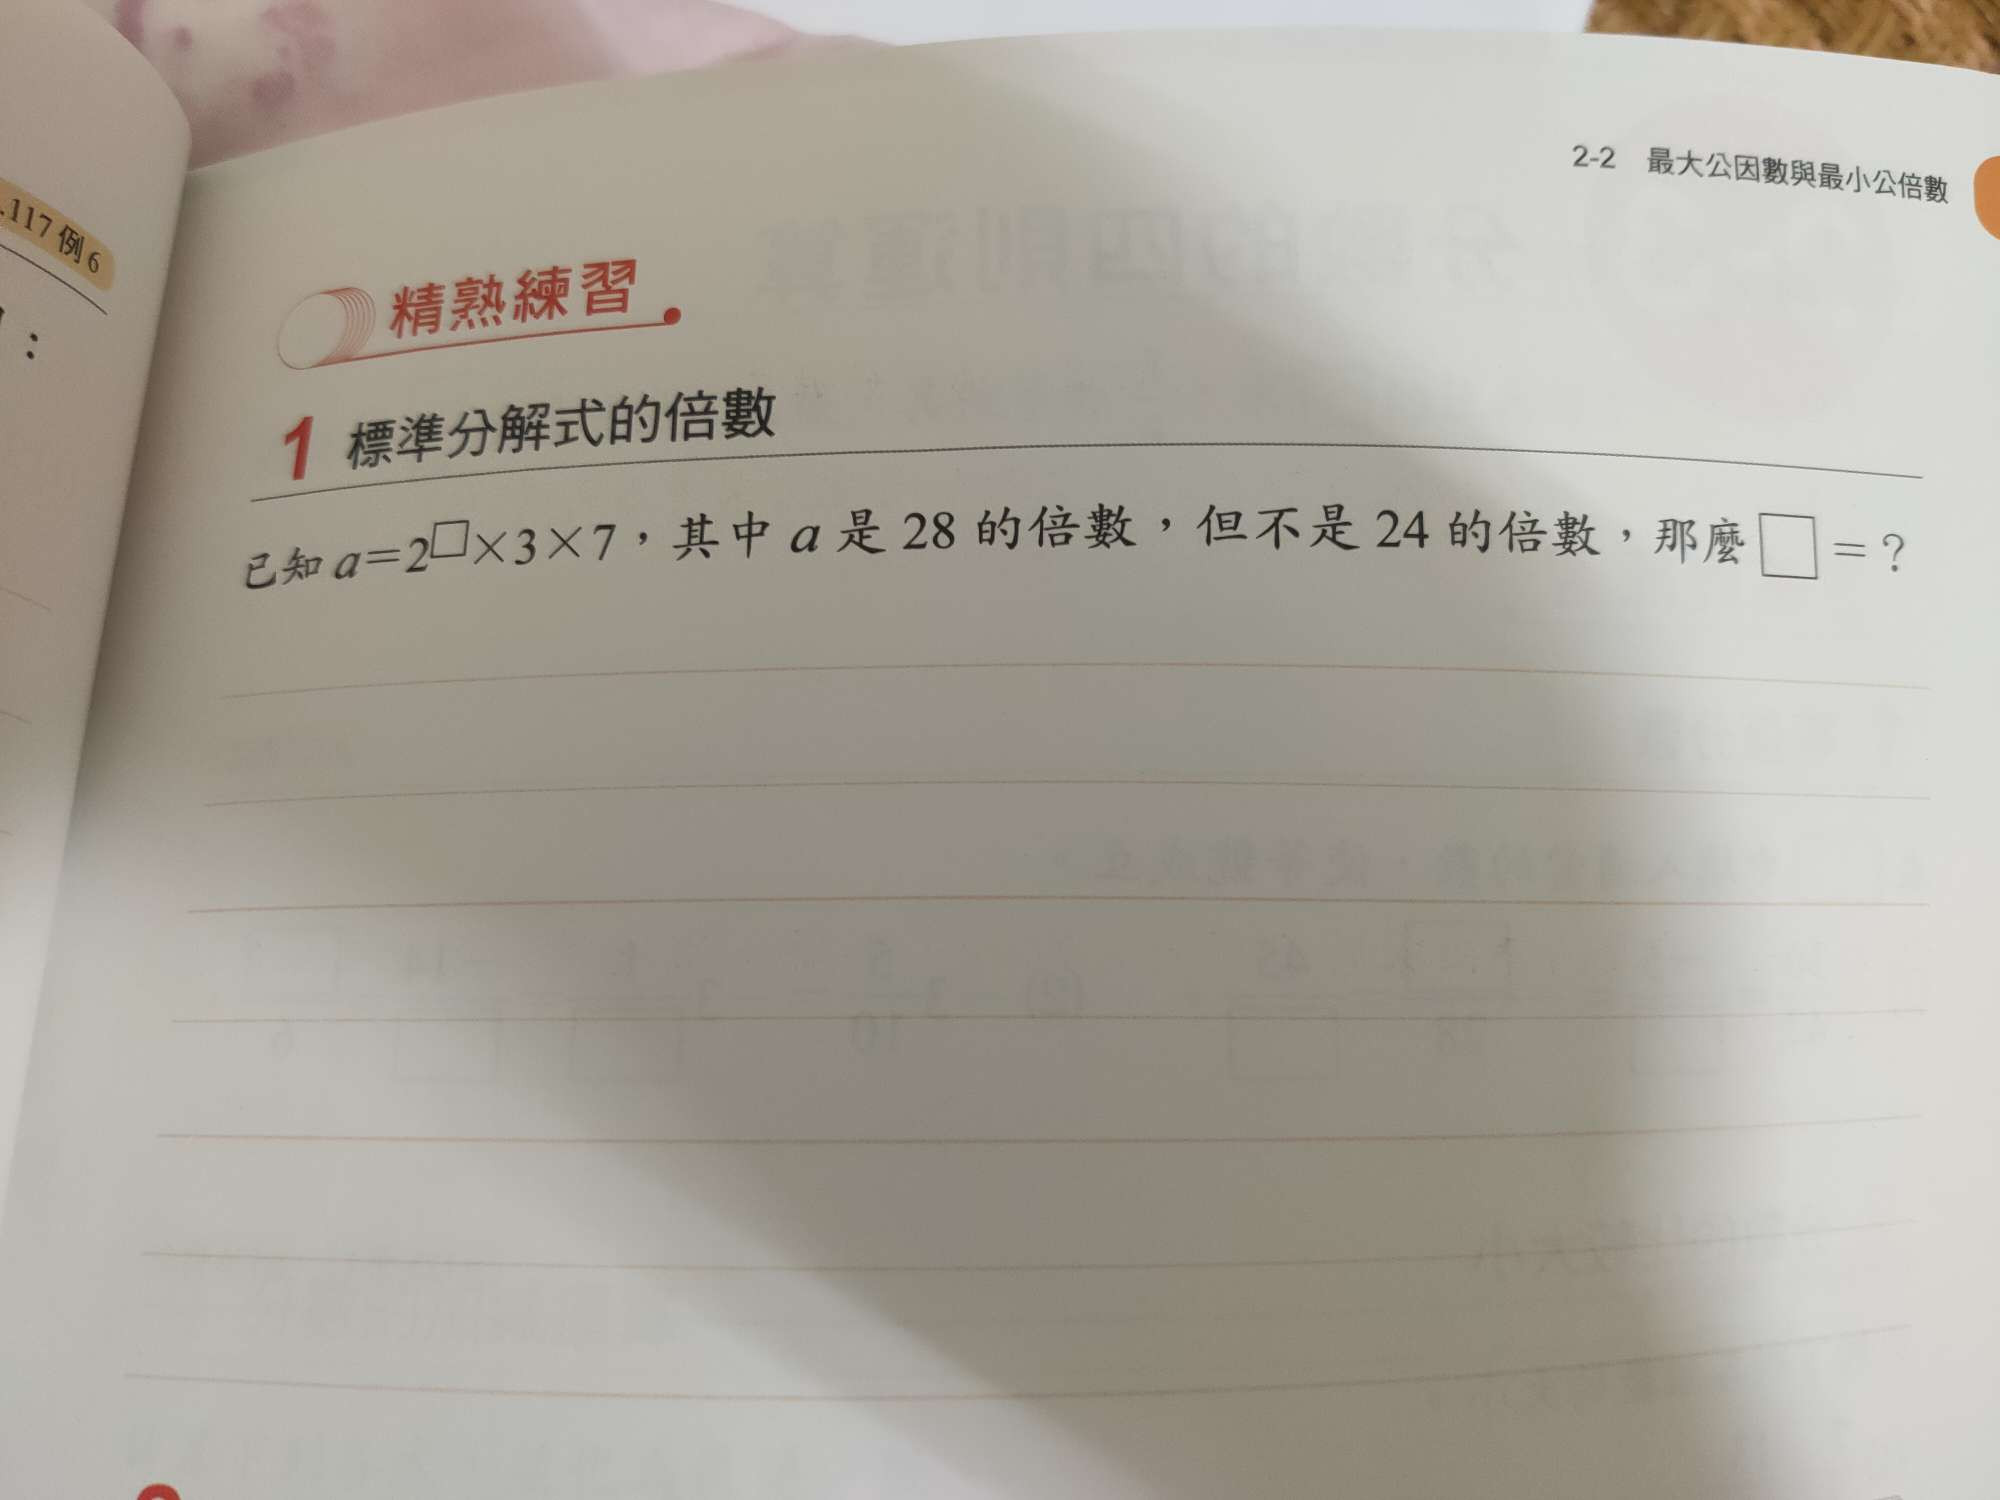 2-2 最大公因數與最小公倍數
.117 例6
：
精熟練習
1 標準分解式的倍數
已知 a=2^□×3×7，其中 a 是 28 的倍數，但不是 24 的倍數，那麼 □ = ?